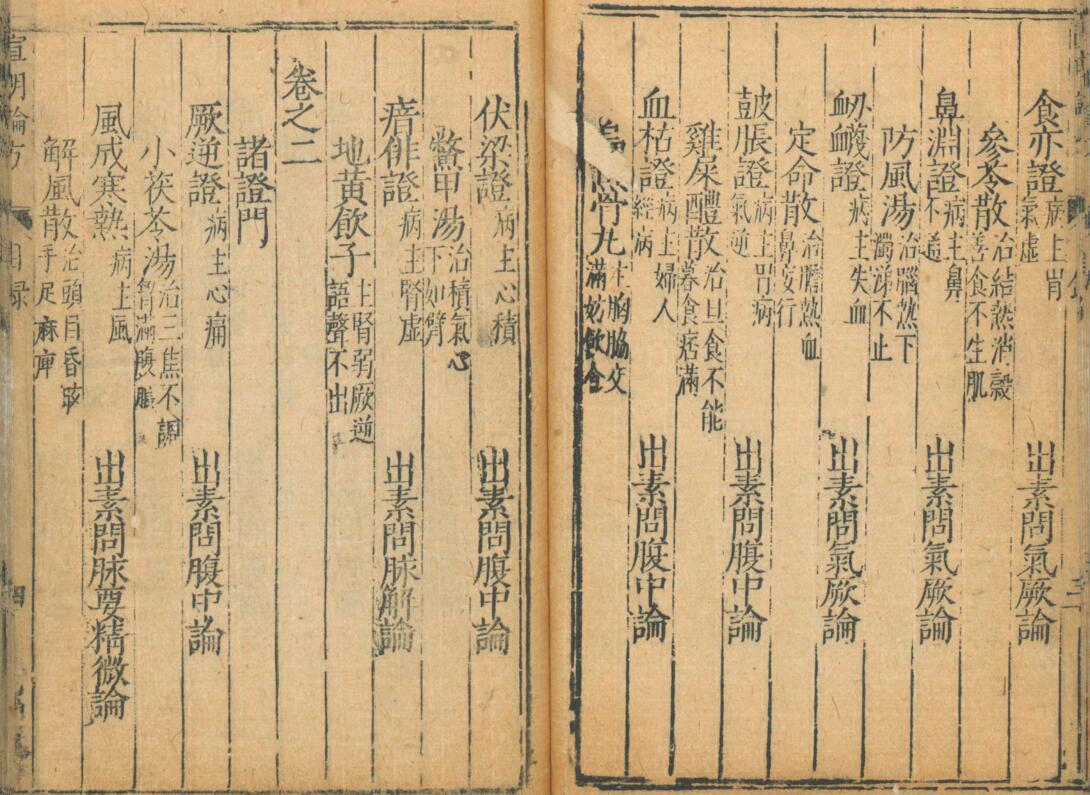 食亦證 病主胃氣虛 出素問氣厥論
參苓散 治結熱消穀善食不生肌
鼻淵證 病主鼻不通 出素問氣厥論
防風湯 治腦熱下濁涕不止
衂𧗕證 病主失血 出素問氣厥論
定命散 治膽熱血鼻妄行
鼓脹證 病主胃病氣逆 出素問腹中論
雞屎醴散 治旦食不能暮食痞滿
血枯證 病主婦人經病 出素問腹中論
骨丸 主胸脇支滿妨飲食
伏梁證 病主心積 出素問腹中論
鱉甲湯 治積氣心下如臂
瘖俳證 病主腎虛 出素問脉解論
地黃飲子 主腎弱厥逆語聲不出
卷之二
諸證門
厥逆證 病主心痛 出素問腹中論
小茯苓湯 治三焦不調胷滿腹脹
風成寒熱 病主風 出素問脉要精微論
解風散 治頭目昏眩手足麻庳
宣明論方 目録 四